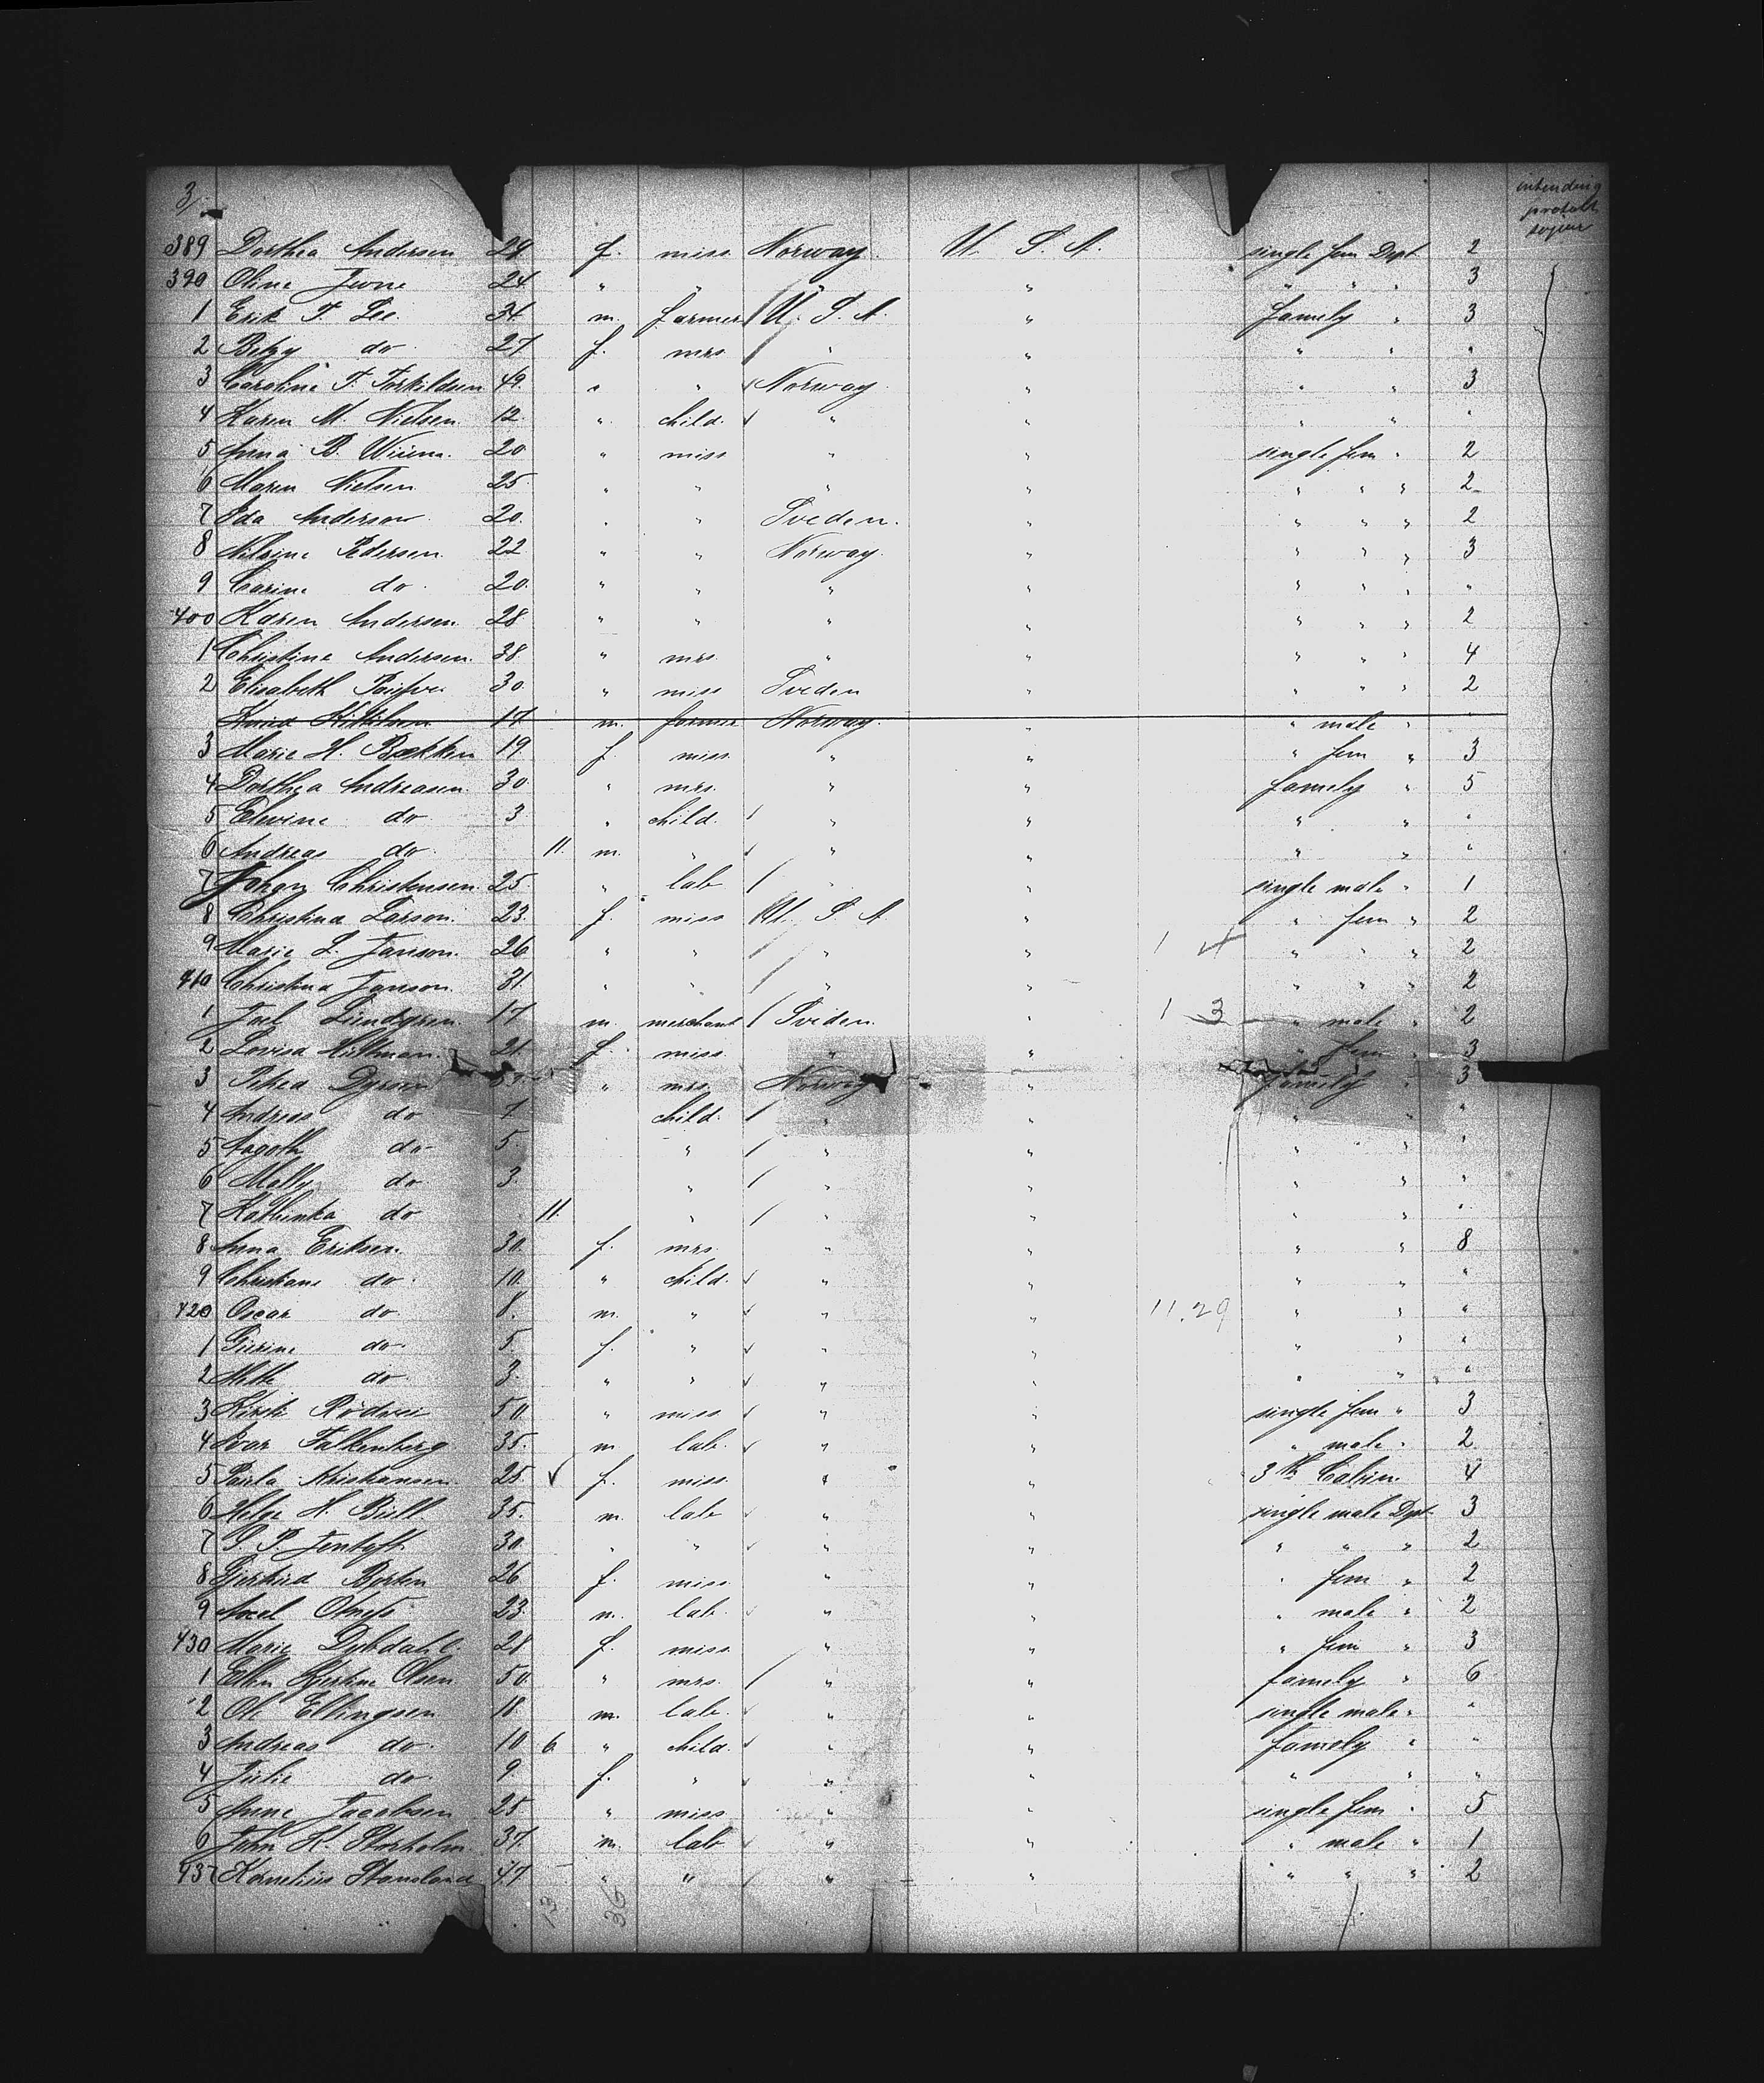 3/
intending
protakt
sojour
389 Dorthea Andersen 29 f. miss Norway U. S. A. single fem Dept 2
390 Oline 24 " " " " " " " 3
1 Erik T. Lee 34 m. farmer U. S. A. " family " 3
2 Betsy do 27 f. mrs " " " " "
3 Caroline T. Torkildsen 49 " " Norway " " " 3
4 Karen M. Nielsen 12 " child " " " " "
5 Anna B. 20 " miss " " single fem " 2
6 Maren Nielsen 25 " " " " " " " 2
7 Ida Anderson 20 " " Sveden. " " " " 2
8 Nilsine Pedersen 22 " " Norway. " " " " 3
9 Carine do 20 " " " " " " " "
400 Karen Andersen 28 " " " " " " " 2
1 Christine Andersen. 38 " mrs. " " " " " 4
2 Elisabeth 30 " miss Sveden " " " " 2
17 m. farmer Norway. " " male "
3 Marie H. Bækken 19 f. miss. " " " fem " 3
4 Dorthea Andreasen. 30 " mrs. " " family " 5
5 Elevine do 3 " child. " " " " "
6 Andreas do 11. m. " " " " " "
7 Johan Christensen. 25 " lab " " single male " 1
8 Christina Larson. 23 f. miss U. S. A. " " fem " 2
9 Marie L. Janson. 26 " " " " 1 4 " " " 2
410 Christina Janson. 31 " " " " " " " 2
1 Joel Lundgren. 17 m. merchant Sveden. " 1 3 " male " 2
2 Lovisa Hultman. 21 f. miss " " " fem " 3
3 Petrea " mrs. Norway " family " 3
4 Andreas do 7 child. " " " " "
5 Aagoth do 5 " " " " " "
6 Molly do 3 " " " " " "
7 Kathinka do 11. " " " " " "
8 Anna Eriksen. 30. f. mrs. " " " " 8
9 Christiane do. 10. " child. " " " " "
420 Oscar do 8. m. " " " 11.29 " " "
1 Gurine do. 5. f. " " " " " "
2 Mette do. 3. " " " " " " "
3 Kirsti 50 " miss " " single fem " 3
4 Ivar Falkenberg 35. m lab. " " " male " 2
5 Paula Kristiansen. 25. f. miss. " " 3th Cabin. 4
6 Helge H. Bull 35. m. lab " " single male Dpt. 3
7 30. " " " " " " " 2
8 26 f. miss. " " " fem " 2
9 Axel 23. m. lab. " " " male " 2
430 Marie Dybdahl. 28 f. miss. " " " fem " 3
1 Ellen Kjerstine Olsen 50 " mrs. " " family " 6
2 Ole Ellingsen 18 m. lab. " " single male " "
3 Andreas do. 10 6 " child. " " family " "
4 Julie do. 9 f. " " " " " "
5 Anne Jacobsen 25 " miss " " single fem " 5
6 John K. 37. m. lab " " " male " 1
437 Kornelius 47 " " " " " " " 2
13 36